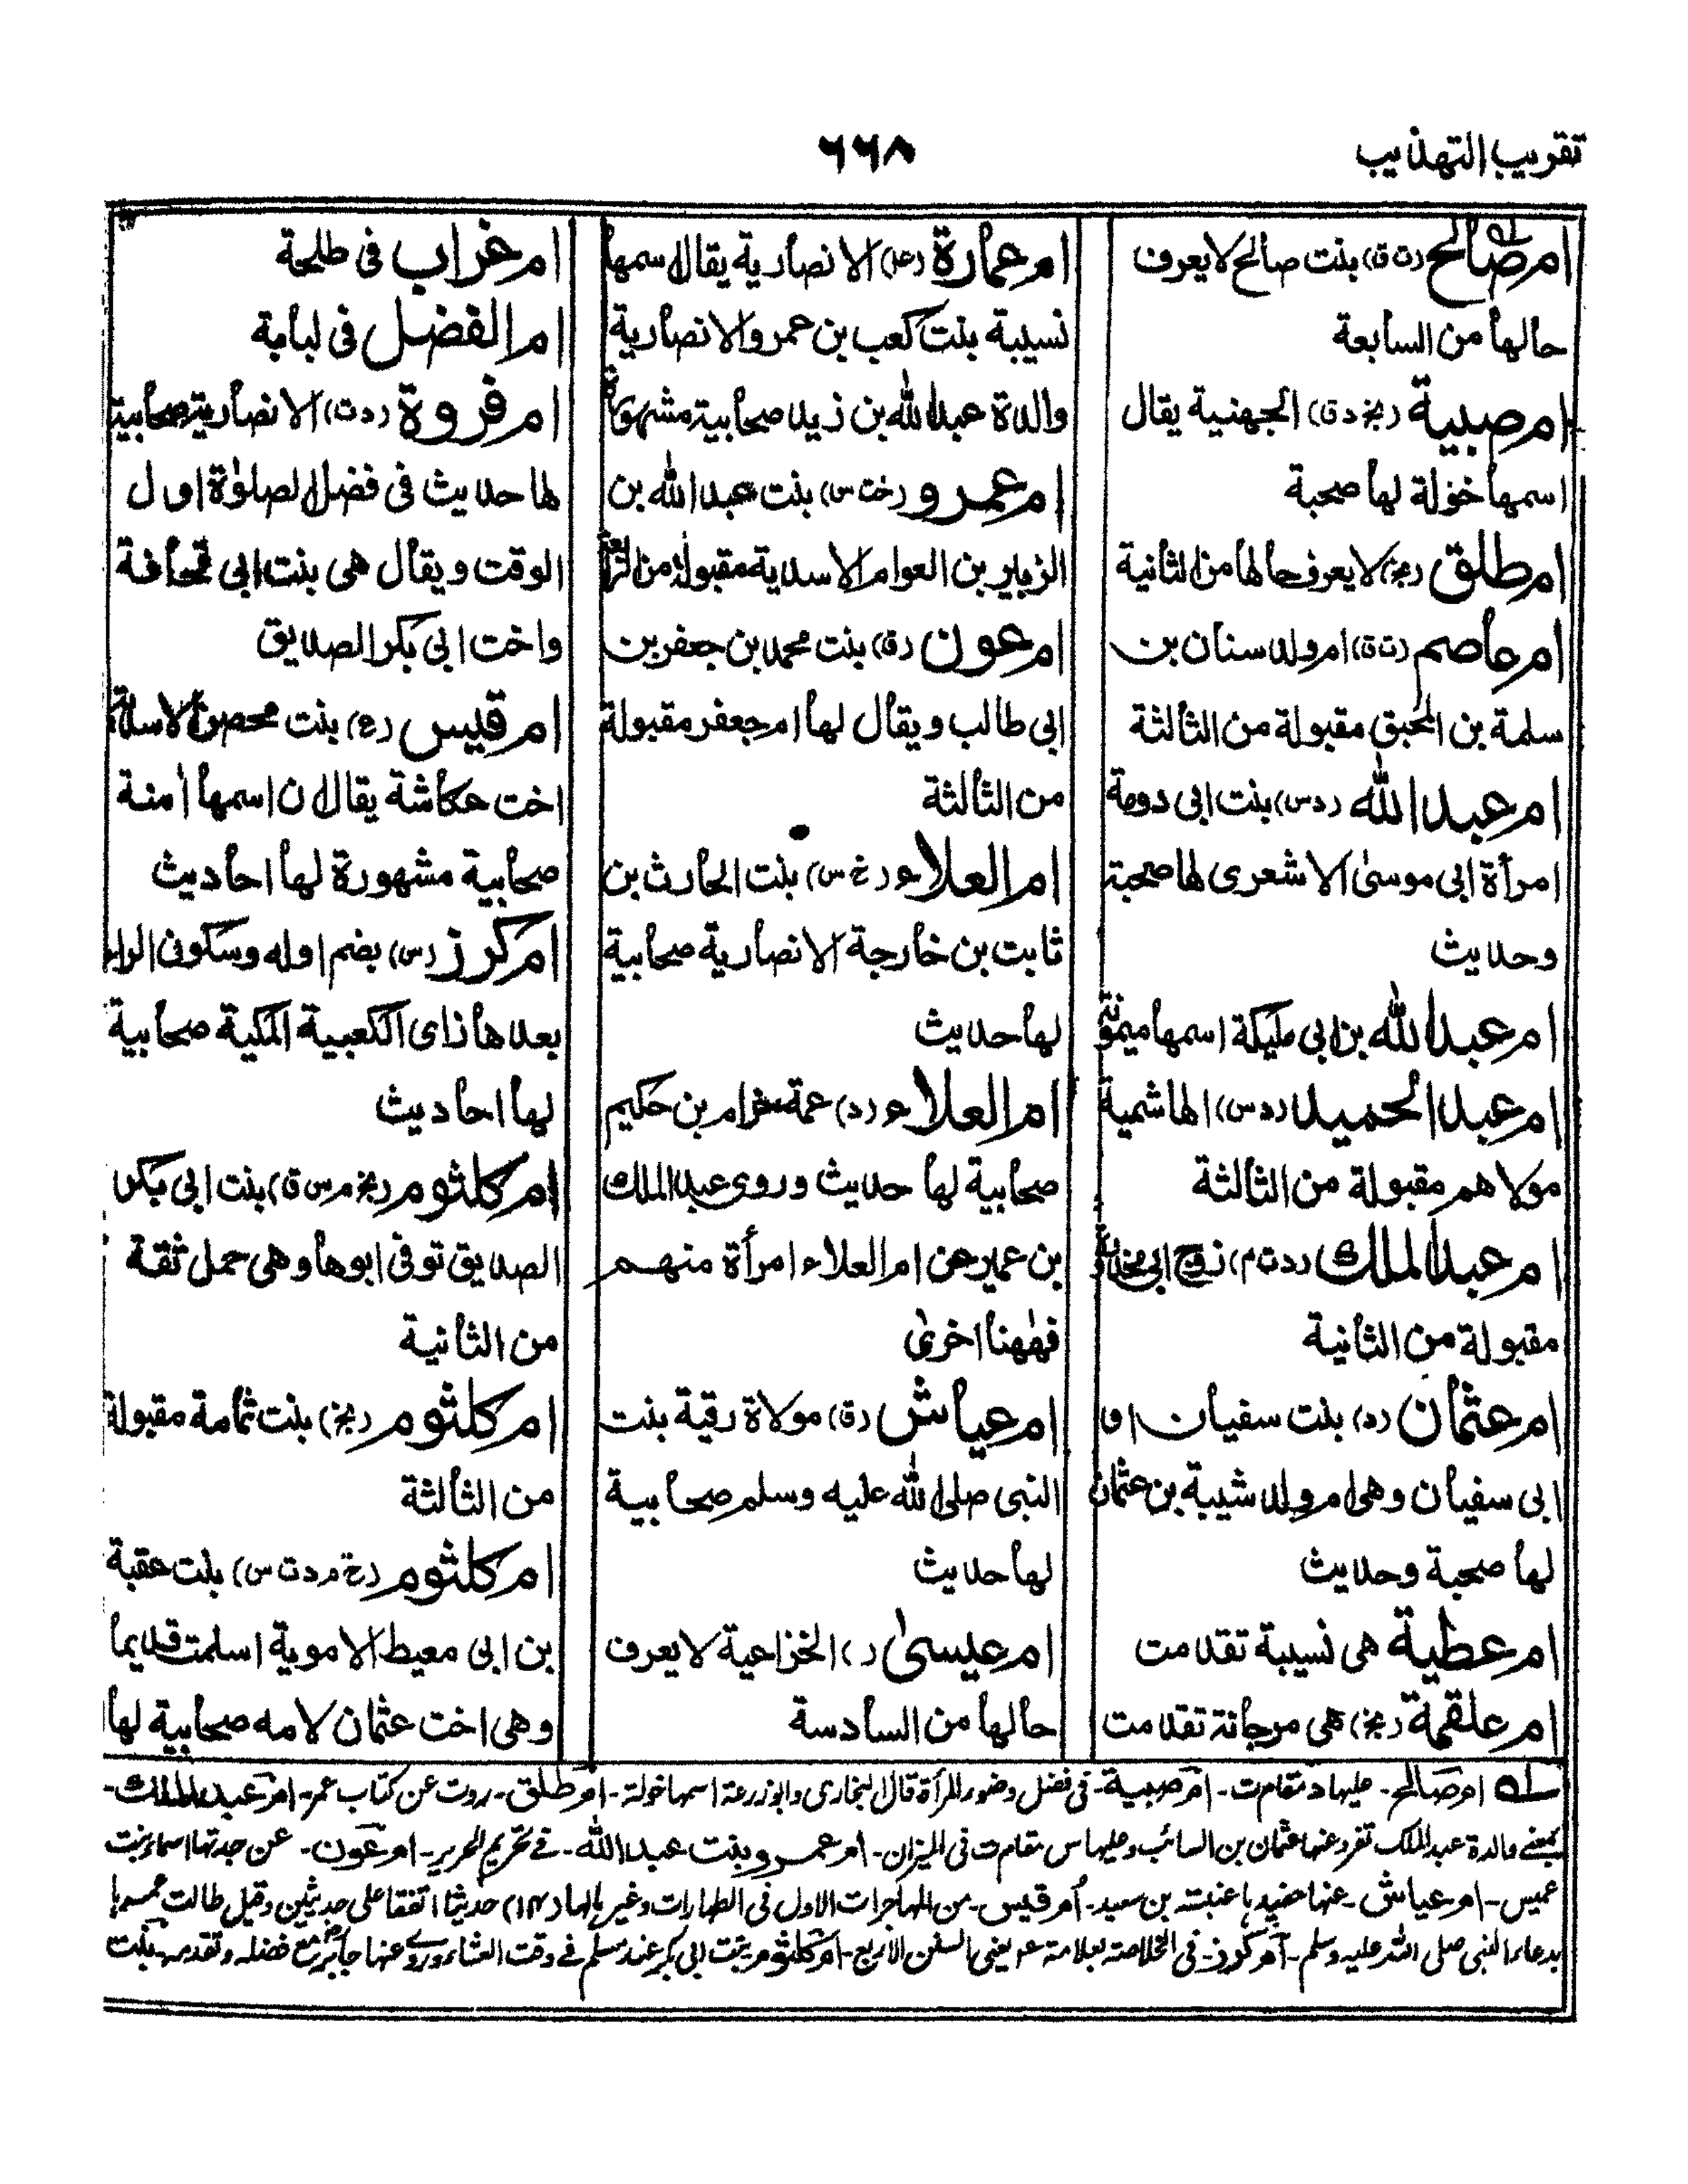 تقريب التهذيب
٦٦٨
ام صالح (ت ق) بنت صالح لا يعرف
حالها من السابعة
ام صبية (بخ د ق) الجهنية يقال
اسمها خولة لها صحبة
ام طلق (بخ) لا يعرف حالها من الثانية
ام عاصم (ت ق) ام ولد سنان بن
سلمة بن المحبق مقبولة من الثالثة
ام عبد الله (د س) بنت ابى دومة
امرأة ابى موسىٰ الاشعرى لها صحبة
وحديث
ام عبد الله بن ابى مليكة اسمها ميمونة
ام عبد الحميد (د س) الهاشمية
مولاهم مقبولة من الثالثة
ام عبد الملك (د ت م) زوج ابى محذورة
مقبولة من الثانية
ام عثمان (د) بنت سفيان او
ابى سفيان وهى ام ولد شيبة بن عثمان
لها صحبة وحديث
ام عطية هى نسيبة تقدمت
ام علقمة (بخ) هى مرجانة تقدمت
ام عمارة (عه) الانصارية يقال اسمها
نسيبة بنت كعب بن عمرو الانصارية
والدة عبد الله بن زيد صحابية مشهورة
ام عمرو (خت س) بنت عبد الله بن
الزبير بن العوام الاسدية مقبولة من
ام عون (ق) بنت محمد بن جعفر بن
ابى طالب ويقال لها ام جعفر مقبولة
من الثالثة
ام العلاء (خ س) بنت الحارث بن
ثابت بن خارجة الانصارية صحابية
لها حديث
ام العلاء (د) عمة حزام بن حكيم
صحابية لها حديث وروى عبد الملك
بن عمير عن ام العلاء امرأة منهم
فهٰهنا اخرىٰ
ام عياش (ق) مولاة رقية بنت
النبى صلى الله عليه وسلم صحابية
لها حديث
ام عيسىٰ (ر) الخزاعية لا يعرف
حالها من السادسة
ام غراب فى طلحة
ام الفضل فى لبابة
ام فروة (د ت) الانصارية صحابية
لها حديث فى فضل الصلوٰة اول
الوقت ويقال هى بنت ابى قحافة
واخت ابى بكر الصديق
ام قيس (ع) بنت محصن الاسدية
اخت عكاشة يقال ان اسمها اٰمنة
صحابية مشهورة لها احاديث
ام كرز (س) بضم اوله وسكون الراء
بعدها زاى الكعبية المكية صحابية
لها احاديث
ام كلثوم (بخ م س ق) بنت ابى بكر
الصديق توفى ابوها وهى حمل ثقة
من الثانية
ام كلثوم (بخ) بنت ثمامة مقبولة
من الثالثة
ام كلثوم (خ م د ت س) بنت عقبة
بن ابى معيط الاموية اسلمت قديما
وهى اخت عثمان لامه صحابية لها
لـه ام صالح - عليها د تقامت - ام صبية - فى فضل وضوء المرأة قال البخارى وابو زرعة اسمها خولة - ام طلق - روت عن كتاب عمر - ام عبد الملك -
بمعنے والدة عبد الملك تفرد عنها عثمان بن السائب وعليها س مقامت فى الميزان - ام عمرو بنت عبد الله - فے تحريم الحرير - ام عون - عن جدتها اسماء بنت
عميس - ام عياش - عنها حفيدها عنبسة بن سعيد - ام قيس - من المهاجرات الاول فى الطهارات وغيرها لها (٢٤) حديثا اتفقا على حديثين وقيل طالت عمرها
بدعاء النبى صلى الله عليه وسلم - ام كرز - فى الخلاصة بعلامة عه يعنى السنن الاربع - ام كلثوم بنت ابى بكر عند مسلم فے وقت العشاء وروى عنها جابر مع فضله وتقدمه - بنت